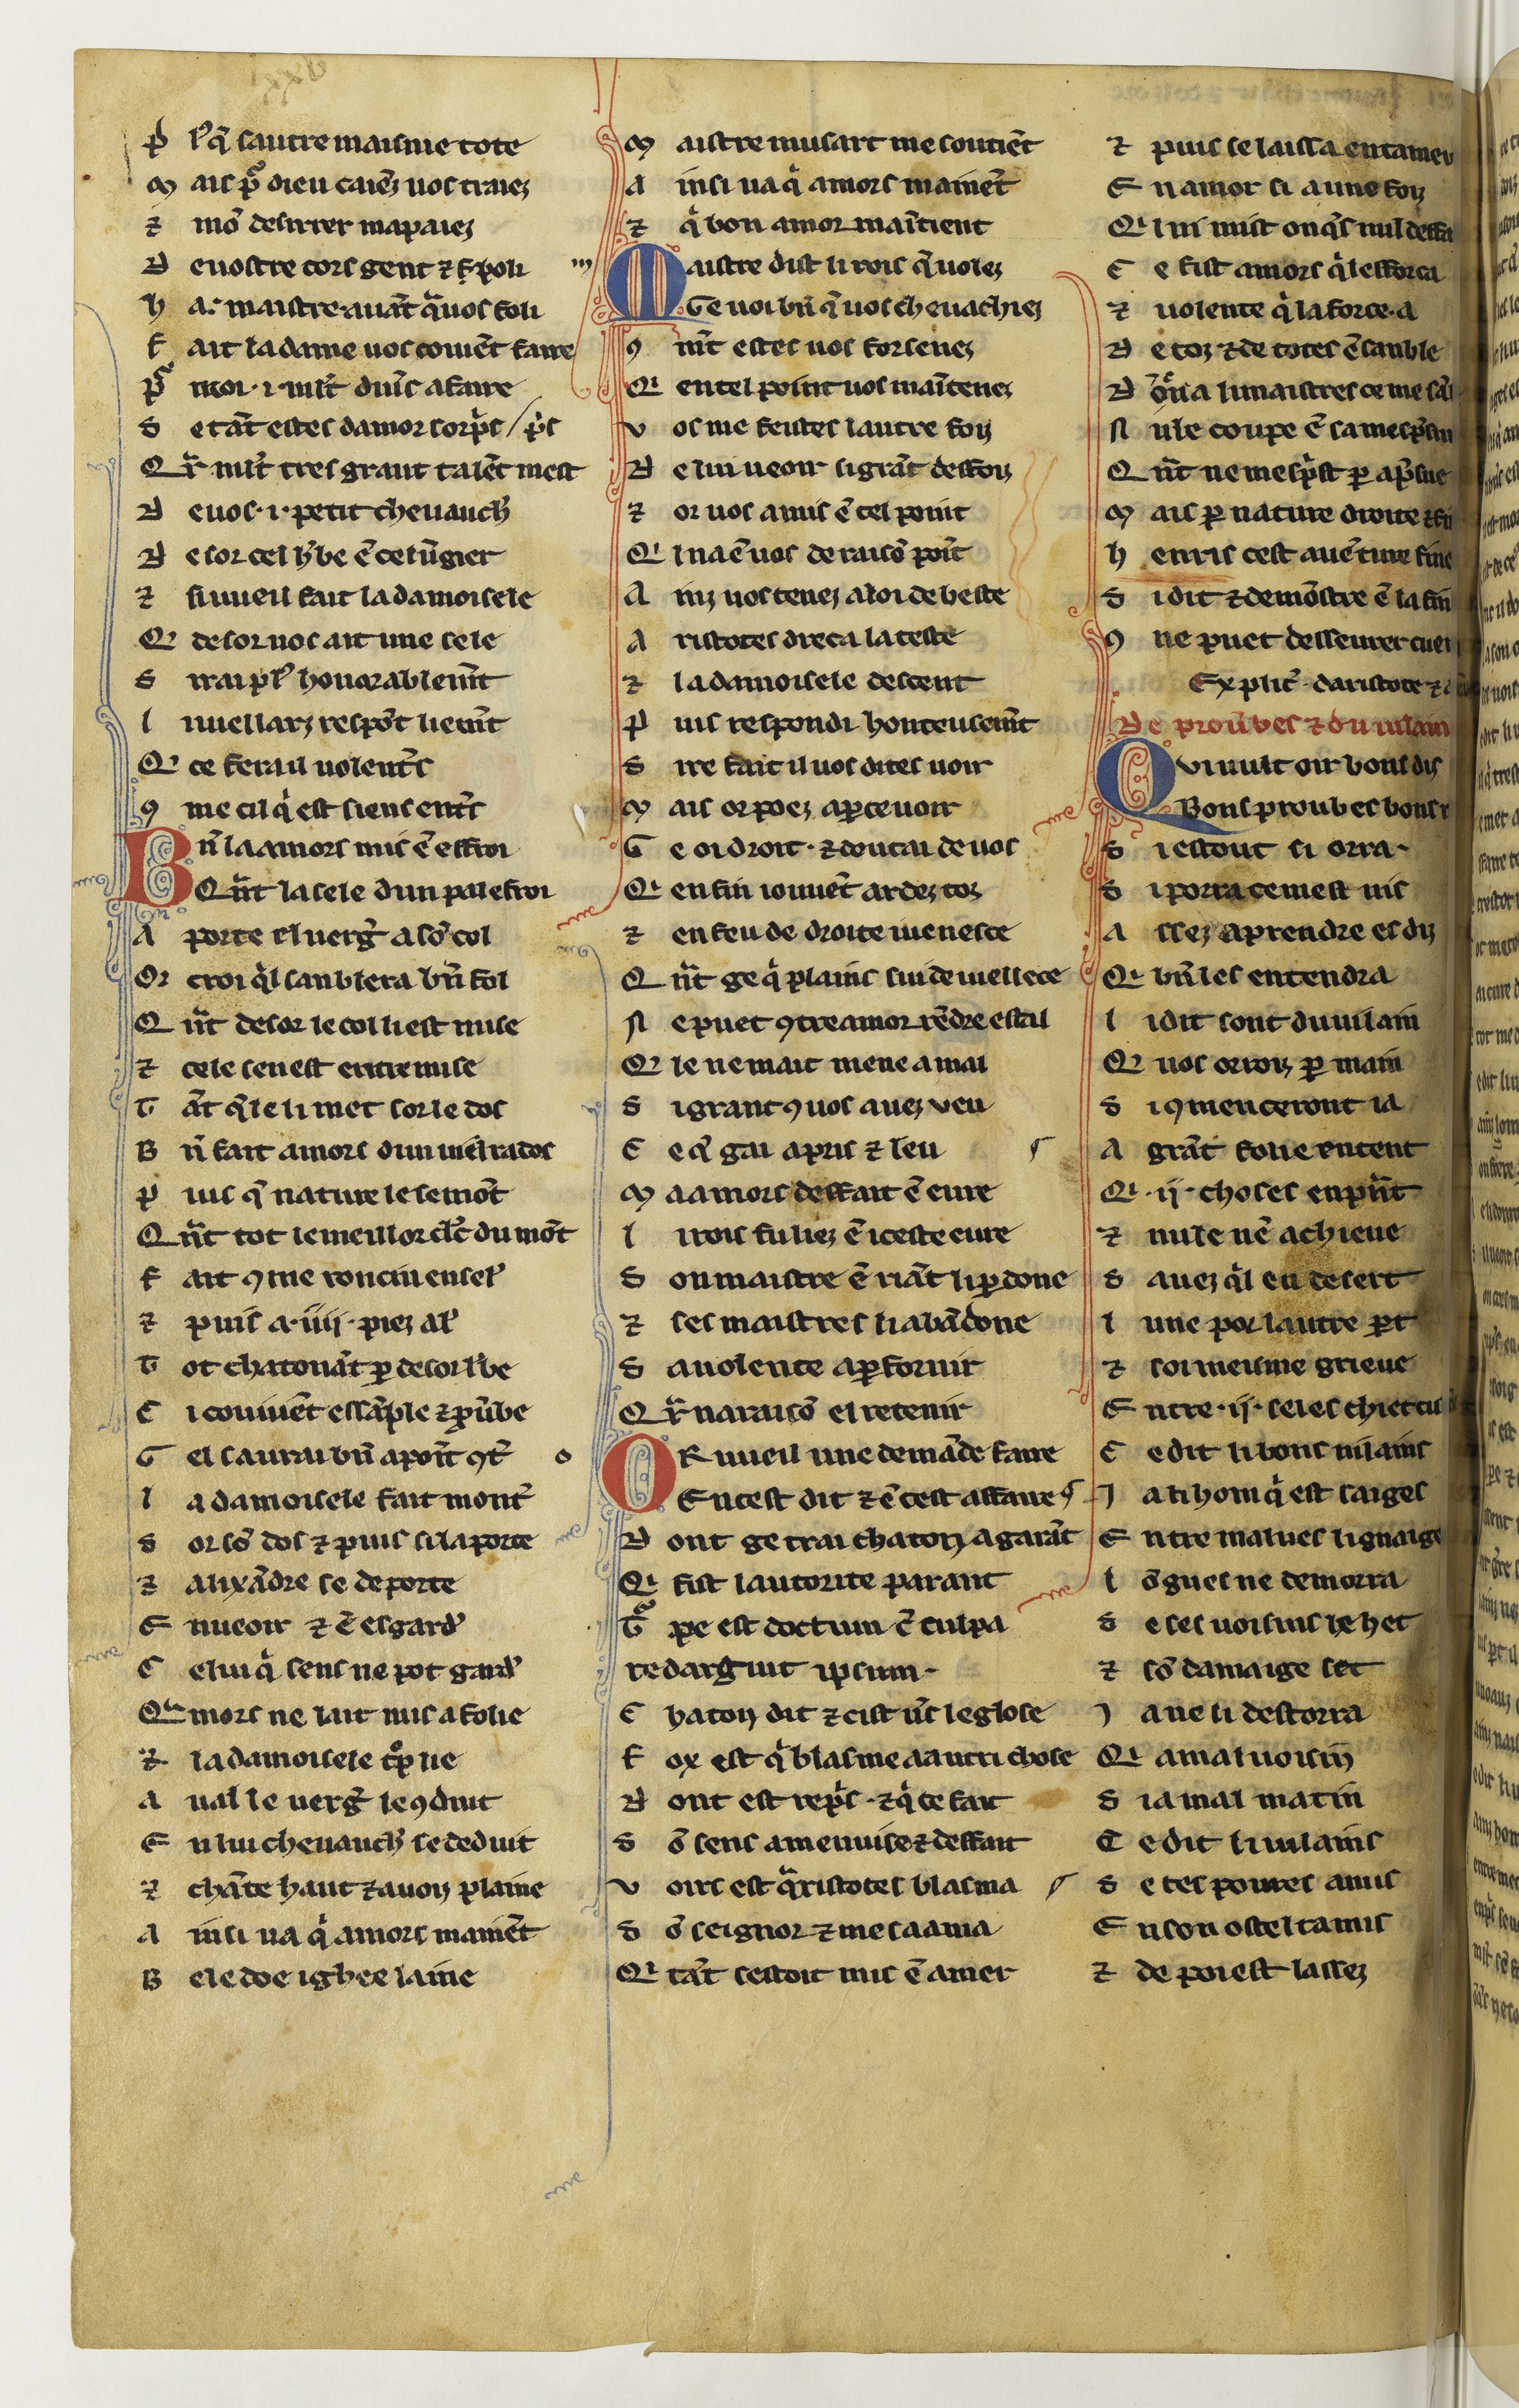 p̃ l'q̃ lautre maisme tote
M ais p̃ dieu caiẽz uos traiez
⁊ mõ desirrer mapaiez
D euostre cors gent ⁊ si poli
h a· maistre auãt q̃uos foli
F ait ladame uos couiẽt faire
p̃ moi ·i· ml̃t diũs afaire
S etãt estes damor sorp̃s
Q r̃ ml̃t tres grant talẽt mest
D euos ·i· petit cheuauch̃
D esor cel h̃be ẽ cel ũgier
⁊ si uueil fait ladamoisele
Q' desor uos ait une sele
S irai pl' honorablem̃t
L iuiellarz respõt liem̃t
Q' ce fera il uolent̃s
ꝯ me cil q̃ est siens ent̃s
B ñ laamors mis ẽ effroi
Qñt lasele dun palefroi
A porte el uerg̃ a sõ col
Or croi q̃l sanblera bñ fol
Q ñt desor le col li est mise
⁊ cele sen est entremise
T ãt q̃le li met sor le dos
B ñ fait amors dun uiel rados
P uis q̃ nature le semõt
Q ñt tot le meillor clc̃ du mõt
F ait ꝯme roncin ensel'
⁊ puis a ·iiij· piez al'
T ot chatonãt ꝑ desor l'be
C i couuiẽt essãple ⁊ ꝓũbe
G el saurai bñ a poĩt ꝯt̃
L adamoisele fait mont̃
S or sõ dos ⁊ puis si la porte
⁊ alixãdre se deporte
E nueoir ⁊ ẽ esgard'
C elui q̃ sens ne pot gard'
Q' amors ne lait mis afolie
⁊ ladamoisele
A ual le uerg̃ le ꝯduit
E n lui cheuauch' se deduit
⁊ chãte haut ⁊ a uoiz plaine
A insi ua q̃ amors mainẽt
B ele doe ighee laine
M aistre musart me soutiẽt
A insi ua q̃ amors mainẽt
⁊ q̃ bon amor maĩtient
M aistre dist li rois q̃ uolez
Ge uoi bñ q̃ uos cheuachiez
ꝯ m̃t estes uos forsenez
Q' en tel point uos maĩtenez
V os me feistes lautre foiz
D e lui ueoir si grãt deffoiz
⁊ or uos a mis ẽ tel point
Q' l na ẽ uos de raisõ poĩt
A inz uos tenez a loi de beste
A ristotes dreca la teste
⁊ la damoisele descent
P uis respondi honteusem̃t
S ire fait il uos dites uoir
M ais or poez aꝑceuoir
G e oi droit · ⁊ doutai de uos
Q' en fin iouuẽt ardez toz
⁊ en feu de droite iuenesce
Q ñt ge q̃ plains sui de uiellece
N e puet ꝯtre amor rẽdre estal
Q' le ne mait mene a mal
S i grant ꝯ uos auez veu
C e q̃ gai apris ⁊ leu
M a amors deffait ẽ eure
L i rois fu liez ẽ iceste eure
S on maistre ẽ riãt li ꝑdone
⁊ ses maistres li abãdone
S a uolente a ꝑfornir
Q r̃ na raisõ el retenir
O R uueil une demãde faire
En cest dit ⁊ ẽ cest affaire
D ont ge trai chaton a garãt
Q' fist lautorite parant
T' pe est doctum c̃ culpa
redarguit ipsum·
C haton dit ⁊ cist ũs le glose
F ox est q̃ blasme a autri chose
D ont est rep̃s · ⁊ q̃ ce fait
S õ sens amenuise ⁊ deffait
V oirs est q̃ristotes blasma
S õ seignor ⁊ mesaama
Q' tãt sestoit mis ẽ amer
⁊ puis se laissa entamer
E namor si a une foiz
Q' l ni mist onq̃s nul
C e fist amors q̃ lefforca
⁊ uolente q̃ la force a
D e toz ⁊ de totes ẽsanble
D õna li maistres ce me
N ule coupe ẽ sa
Q ñt ne mesp̃st ꝑ
M ais ꝑ nature droite
h enris cest auẽture fine
S i dit ⁊ demõstre ẽ la fin
ꝯ ne puet desseurer
Explic̃· daristote ⁊
De prou̾bes ⁊ du uilain
Q Viuult oir bons diz
Bons proubes bons
S i estout si orra·
S i porra ce mest uis
A ssez aprendre es diz
Q' bñ les entendra
L i dit sont du uilain
Q' uos orroiz ꝑ main
S i ꝯmenceront ia
A grãt folie entent
Q' ·ij· choses enp̃nt
⁊ nule nẽ achieue
S auez q̃l en desert
L une por lautre ꝑt
⁊ soi meisme grieue
E ntre ·ij· seles chiet
C e dit li bons uilains
J a ti hom q̃ est saiges
E ntre malues lignaige
L õgues ne demorra
S e ses uoisins le het
⁊ sõ damaige set
J a ne li destorra
Q' a mal uoisin
S i a mal matin
C e dit li uilains
S e tes poures amis
E n son ostel ta mis
⁊ de poi est lassez